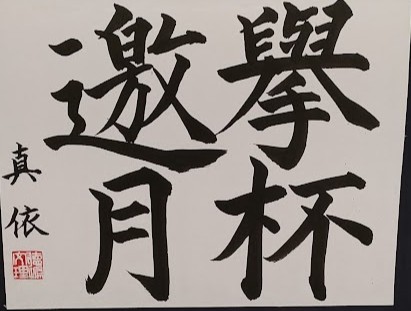 擧杯
邀月
真依